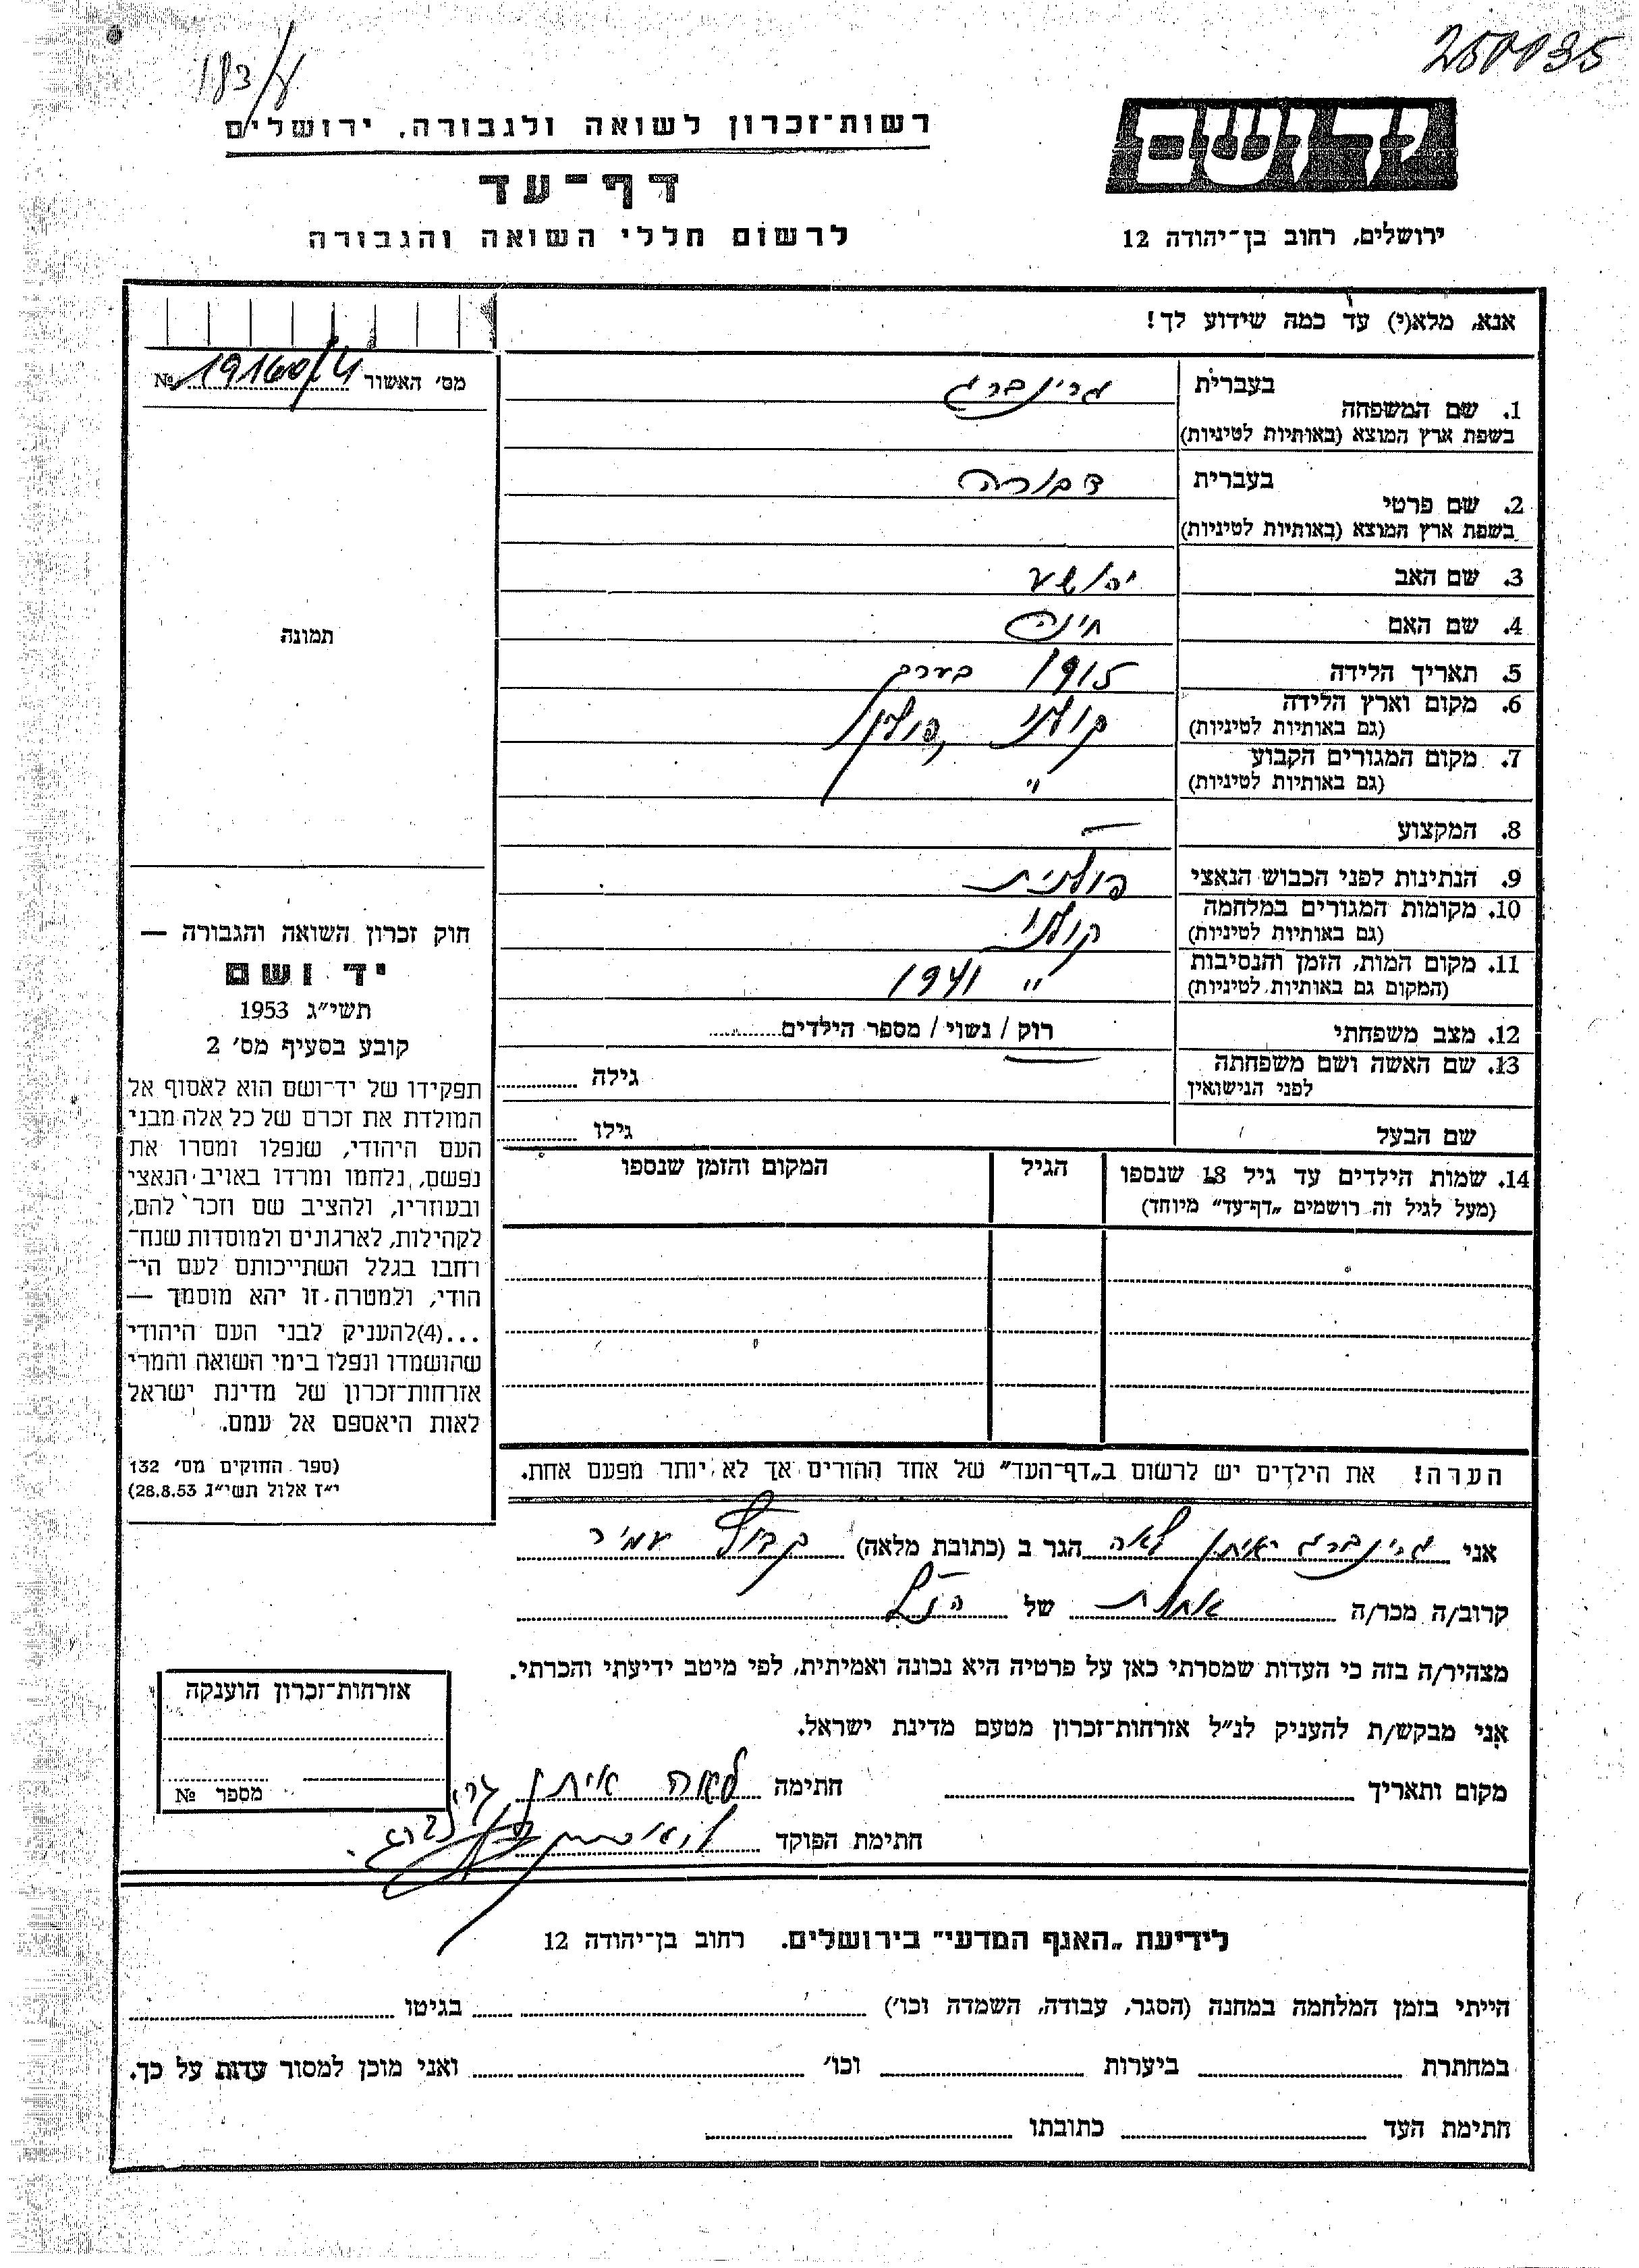 250135
183/ע
יד ושם
רשות־זכרון לשואה ולגבורה, ירושלים
דף־עד
לרשום חללי השואה והגבורה
ירושלים, רחוב בן־יהודה 12
אנא, מלא(י) עד כמה שידוע לך!
מס׳ האשור 19160/ № 
בעברית גרינברג
1. שם המשפחה
בשפת ארץ המוצא (באותיות לטיניות)
בעברית דבורה
2. שם פרטי
בשפת ארץ המוצא (באותיות לטיניות)
3. שם האב יהושע
4. שם האם חינה
תמונה
5. תאריך הלידה 1915 בערך
6. מקום וארץ הלידה קולני, פולין
(גם באותיות לטיניות)
7. מקום המגורים הקבוע
(גם באותיות לטיניות) "
8. המקצוע —
9. הנתינות לפני הכבוש הנאצי פולנית
10. מקומות המגורים במלחמה קולני
(גם באותיות לטיניות)
11. מקום המות, הזמן והנסיבות " 1941
(המקום גם באותיות לטיניות)
12. מצב משפחתי רוק / נשוי / מספר הילדים
13. שם האשה ושם משפחתה
לפני הנישואין גילה
שם הבעל גילו
14. שמות הילדים עד גיל 18 שנספו הגיל המקום והזמן שנספו
(מעל לגיל זה רושמים „דף־עד״ מיוחד)
חוק זכרון השואה והגבורה —
יד ושם
תשי״ג 1953
קובע בסעיף מס׳ 2
תפקידו של יד־ושם הוא לאסוף אל
המולדת את זכרם של כל אלה מבני
העם היהודי, שנפלו ומסרו את
נפשם, נלחמו ומרדו באויב הנאצי
ובעוזריו, ולהציב שם וזכר להם,
לקהילות, לארגונים ולמוסדות שנח־
רחבו בגלל השתייכותם לעם הי־
הודי, ולמטרה זו יהא מוסמך —
...(4) להעניק לבני העם היהודי
שהושמדו ונפלו בימי השואה והמרי
אזרחות־זכרון של מדינת ישראל
לאות היאספם אל עמם.
(ספר החוקים מס׳ 132
י״ז אלול תשי״ג 28.8.53)
הערה! את הילדים יש לרשום ב„דף־העד״ של אחד ההורים אך לא יותר מפעם אחת.
אני גרינברג איתן לאה הגר ב (כתובת מלאה) קבוץ עמיר
קרוב/ה מכר/ה אחות של הנ"ל
מצהיר/ה בזה כי העדות שמסרתי כאן על פרטיה היא נכונה ואמיתית, לפי מיטב ידיעתי והכרתי.
אני מבקש/ת להעניק לנ״ל אזרחות־זכרון מטעם מדינת ישראל.
מקום ותאריך חתימה לאה איתן גרינברג
חתימת הפוקד
אזרחות־זכרון הוענקה
מספר №
לידיעת „האגף המדעי״ בירושלים. רחוב בן־יהודה 12
הייתי בזמן המלחמה במחנה (הסגר, עבודה, השמדה וכו׳) בגיטו
במחתרת ביערות וכו׳ ואני מוכן למסור עדות על כך.
חתימת העד כתובתו